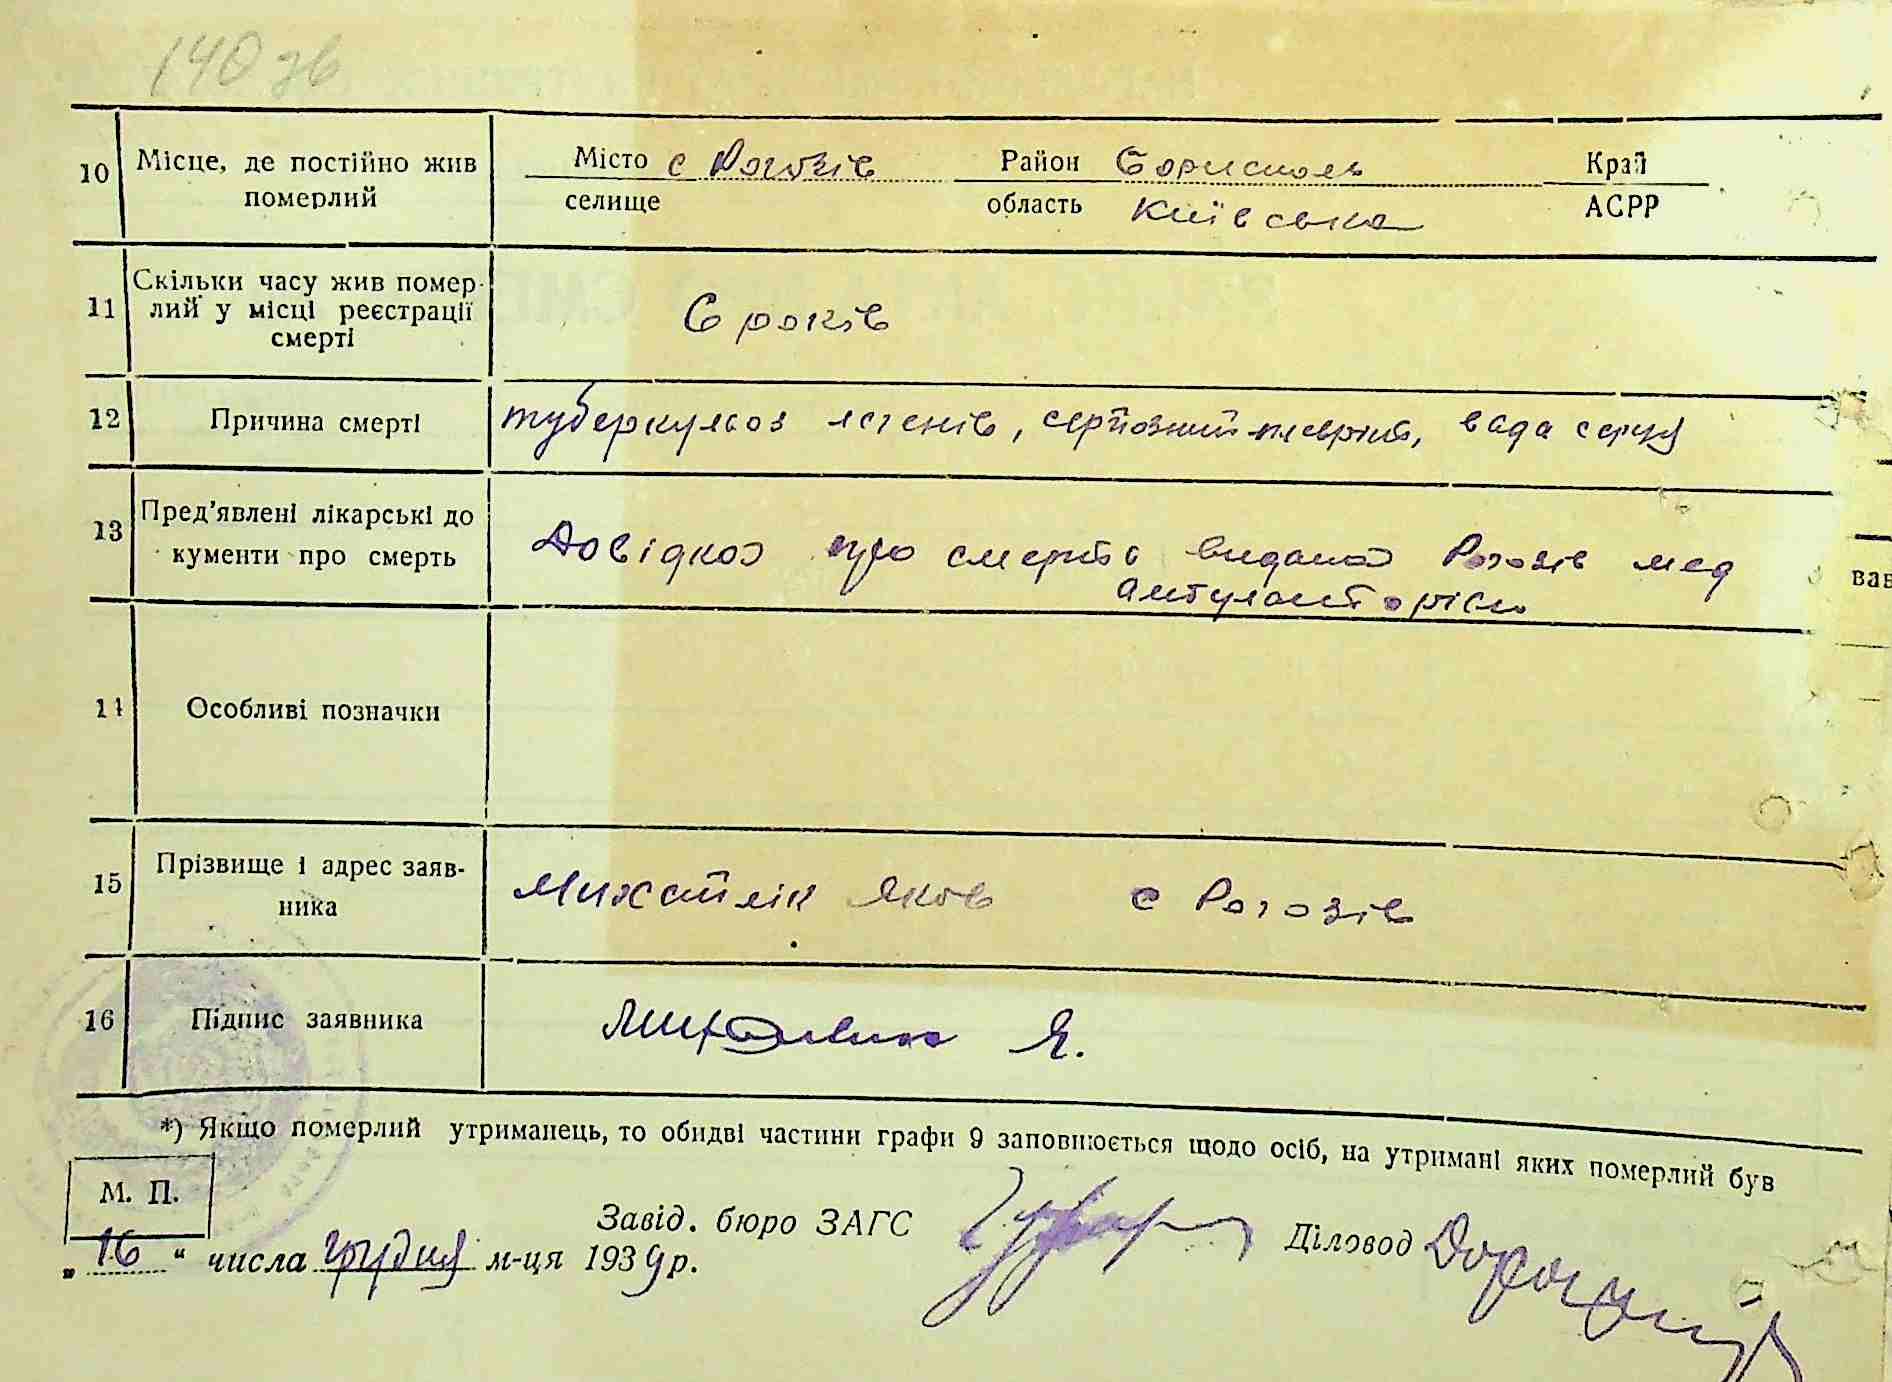 140 зв
10 Місце, де постійно жив Місто с Рогозів Район Бориспіль Край
померлий селище область Київська АСРР
11 Скільки часу жив помер-
лий у місці реєстрації 6 років
смерті
12 Причина смерті туберкульоз легенів, серйозний плеврит, вада серця
13 Пред'явлені лікарські до
кументи про смерть Довідка про смерть видана Рогозів мед
амбулаторією
ваь
14 Особливі позначки
15 Прізвище і адрес заяв- Михайлік Яков с Рогозів
ника
16 Підпис заявника Михайлик Я.
*) Якщо померлий утриманець, то обидві частини графи 9 заповнюється щодо осіб, на утримані яких померлий був
М. П.
Завід. бюро ЗАГС Діловод
„16“ числа грудня м-ця 1939 р.